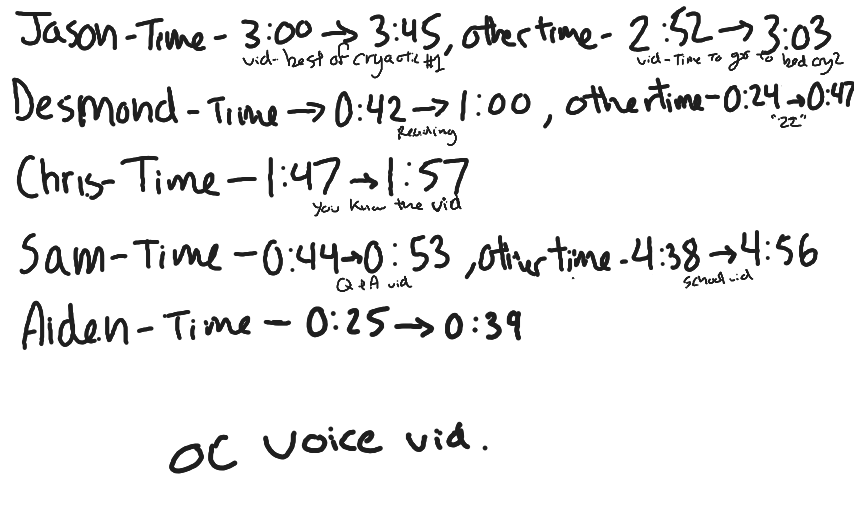 Jason-Time- 3:00 → 3:45, other time- 2:52 → 3:03
vid- best of Cryaotic #1 vid-Time To go to bed cry2
Desmond-Time → 0:42 → 1:00, other time-0:24 → 0:47
Reading "22"
Chris-Time-1:47 → 1:57
you know the vid
Sam-Time-0:44 → 0:53, other time-4:38 → 4:56
Q&A vid School vid
Aiden-Time- 0:25 → 0:39
OC Voice vid.